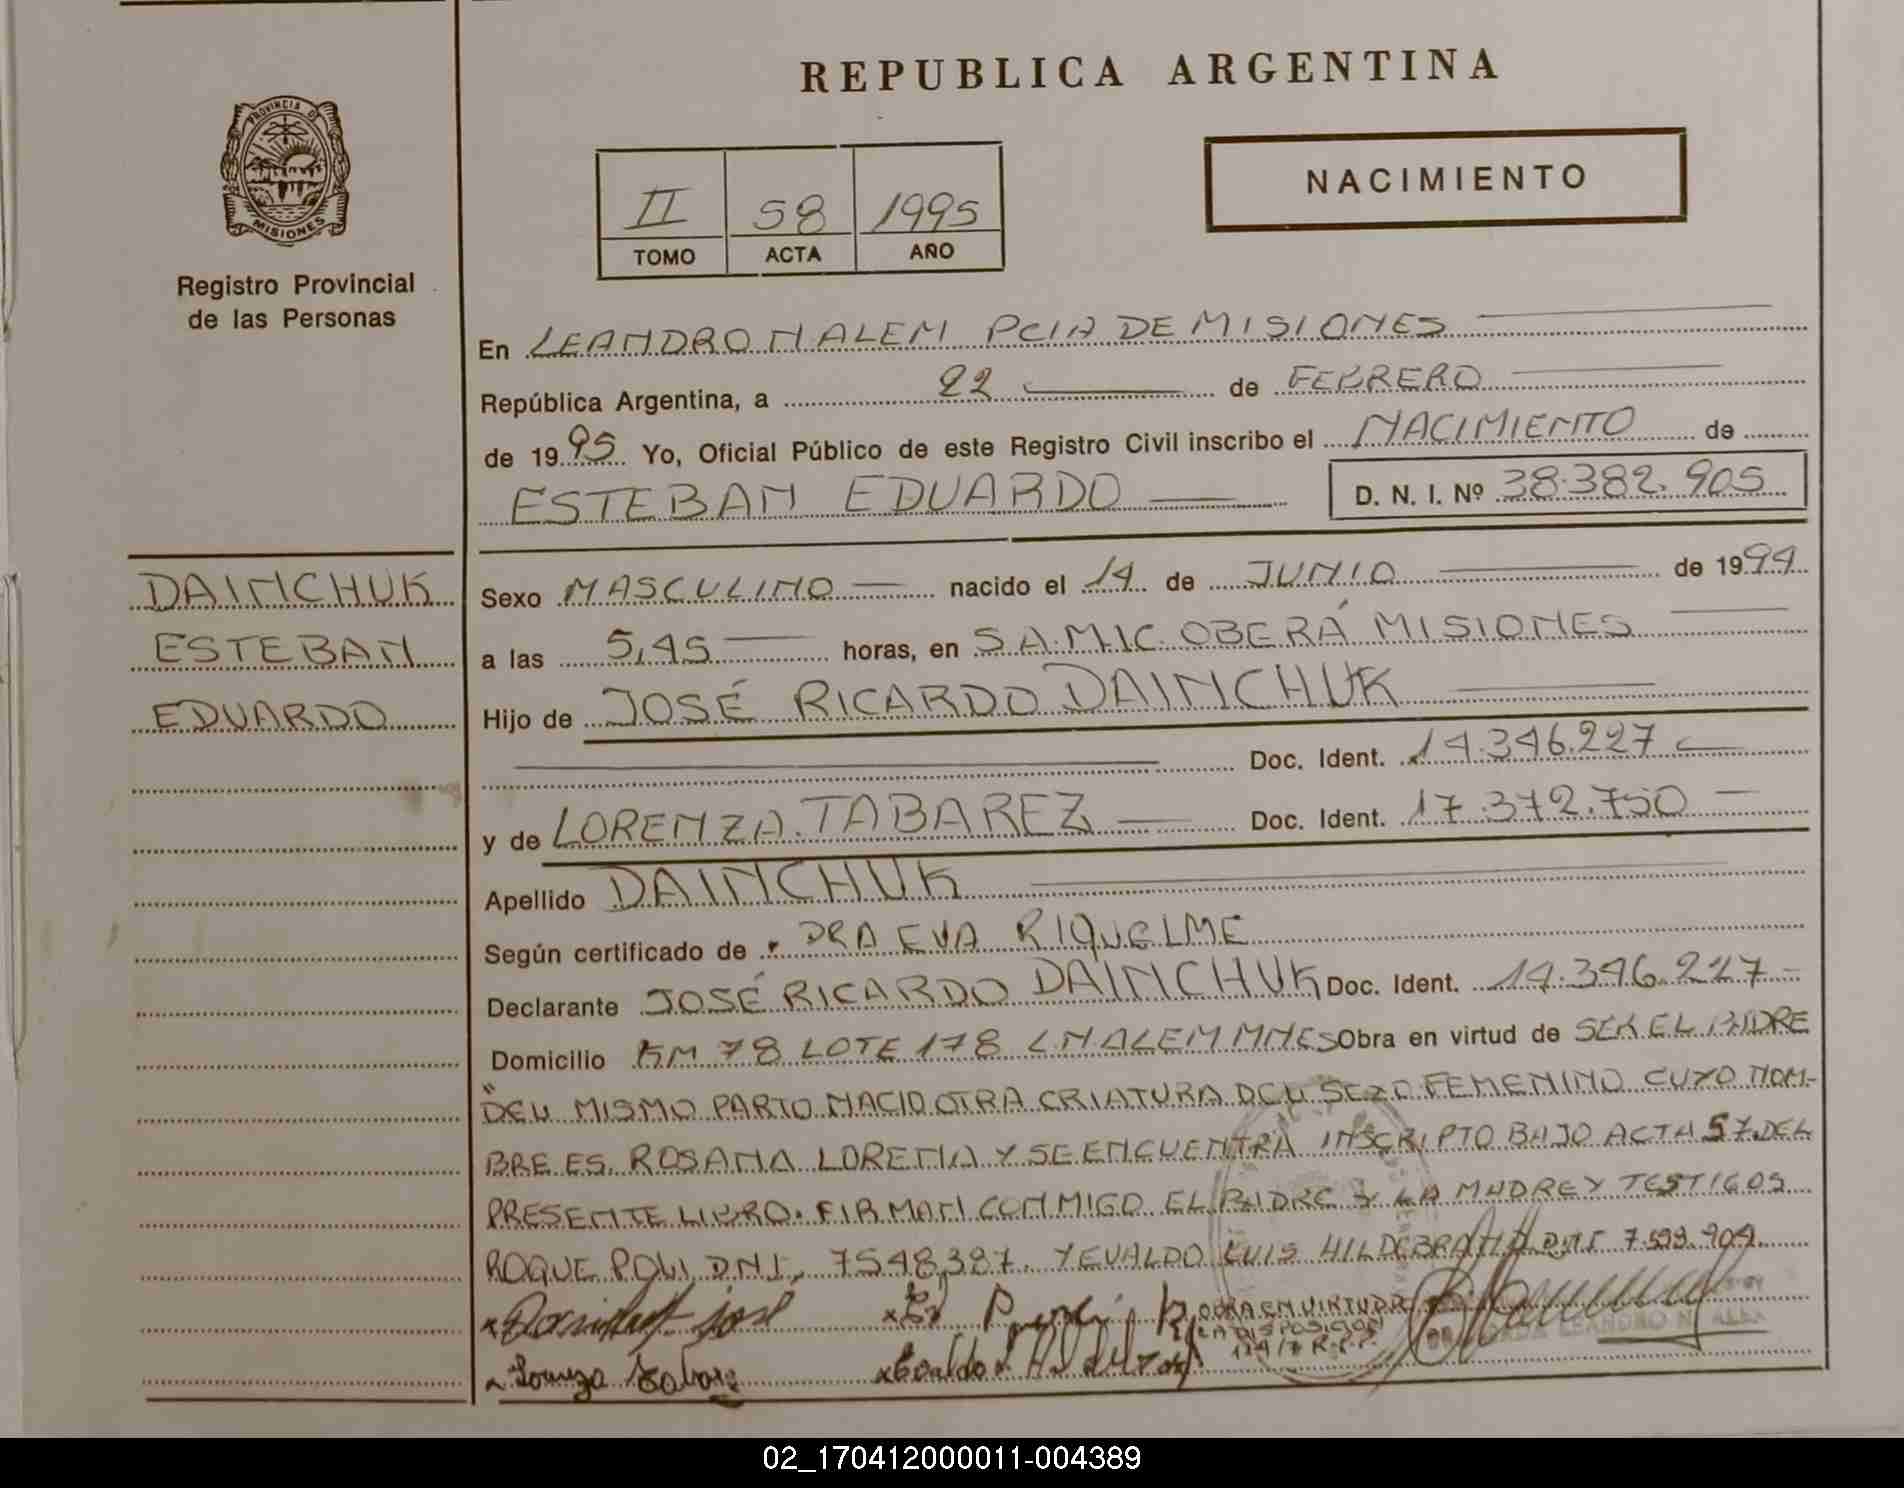 REPUBLICA ARGENTINA
PROVINCIA DE
MISIONES
Registro Provincial
de las Personas
II 58 1995
TOMO ACTA AÑO
NACIMIENTO
En LEANDRO N ALEM PCIA DE MISIONES
República Argentina, a 22 de FEBRERO
de 1995 Yo, Oficial Público de este Registro Civil inscribo el NACIMIENTO de
ESTEBAN EDUARDO D. N. I. Nº 38.382.905
DAINCHUK
ESTEBAN
EDUARDO
Sexo MASCULINO nacido el 14 de JUNIO de 1994
a las 5,45 horas, en S.A.M.I.C. OBERÁ MISIONES
Hijo de JOSÉ RICARDO DAINCHUK
Doc. Ident. 14.346.227
y de LORENZA TABAREZ Doc. Ident. 17.372.750
Apellido DAINCHUK
Según certificado de DRA EVA RIQUELME
Declarante JOSÉ RICARDO DAINCHUK Doc. Ident. 14.346.227
Domicilio KM 78 LOTE 178 L.N.ALEM MNES Obra en virtud de SER EL PADRE
"DEL MISMO PARTO NACIO OTRA CRIATURA DEL SEXO FEMENINO CUYO NOM-
BRE ES ROSANA LORENA Y SE ENCUENTRA INSCRIPTO BAJO ACTA 57 DEL
PRESENTE LIBRO. FIRMAN CONMIGO EL PADRE Y LA MADRE Y TESTIGOS
ROQUE POLI DNI. 7548,387. Y EVALDO LUIS HILDEBRAND DNI 7.599.904
x Dainchuk José
OBRA EN VIRTUD DE
LA DISPOSICION
R.P.P.
LEANDRO N. ALEM
x Lorenza Tabarez x Evaldo L Hildebrand
02_170412000011-004389